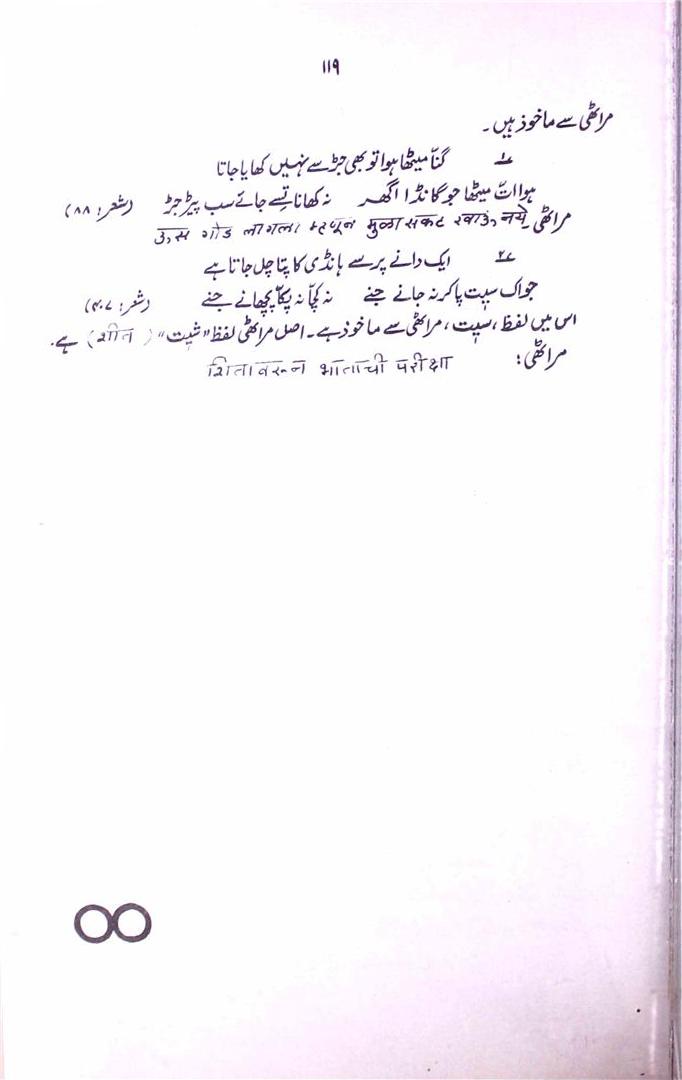 ۱۱۹
مراٹھی سے ماخوذ ہیں۔
۱؎ گنّا میٹھا ہوا تو بھی جڑ سے نہیں کھایا جاتا
ہوا اتّ میٹھا جو گانڈا اگھہ نہ کھانا تِسے جائے سب پیڑ جڑ (شعر: ۸۸)
مراٹھی उस गोड लागला म्हणून मुळासकट खाऊं नये
۲؎ ایک دانے پر سے ہانڈی کا پتا چل جاتا ہے
جو اک سیت پا کر نہ جانے جنے نہ کچّا نہ پکّا پچھانے جنے (شعر: ۴۰۷)
اس میں لفظ، سیت، مراٹھی سے ماخوذ ہے۔ اصل مراٹھی لفظ "شیت" (शीत) ہے۔
مراٹھی: शितावरून भाताची परीक्षा